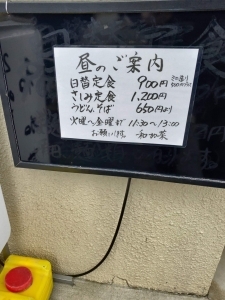 昼のご案内
日替定食 900円
さしみ定食 1,200円
うどん、そば 650円より
火曜〜金曜まで 11:30〜13:00
お願いします。 和加菜